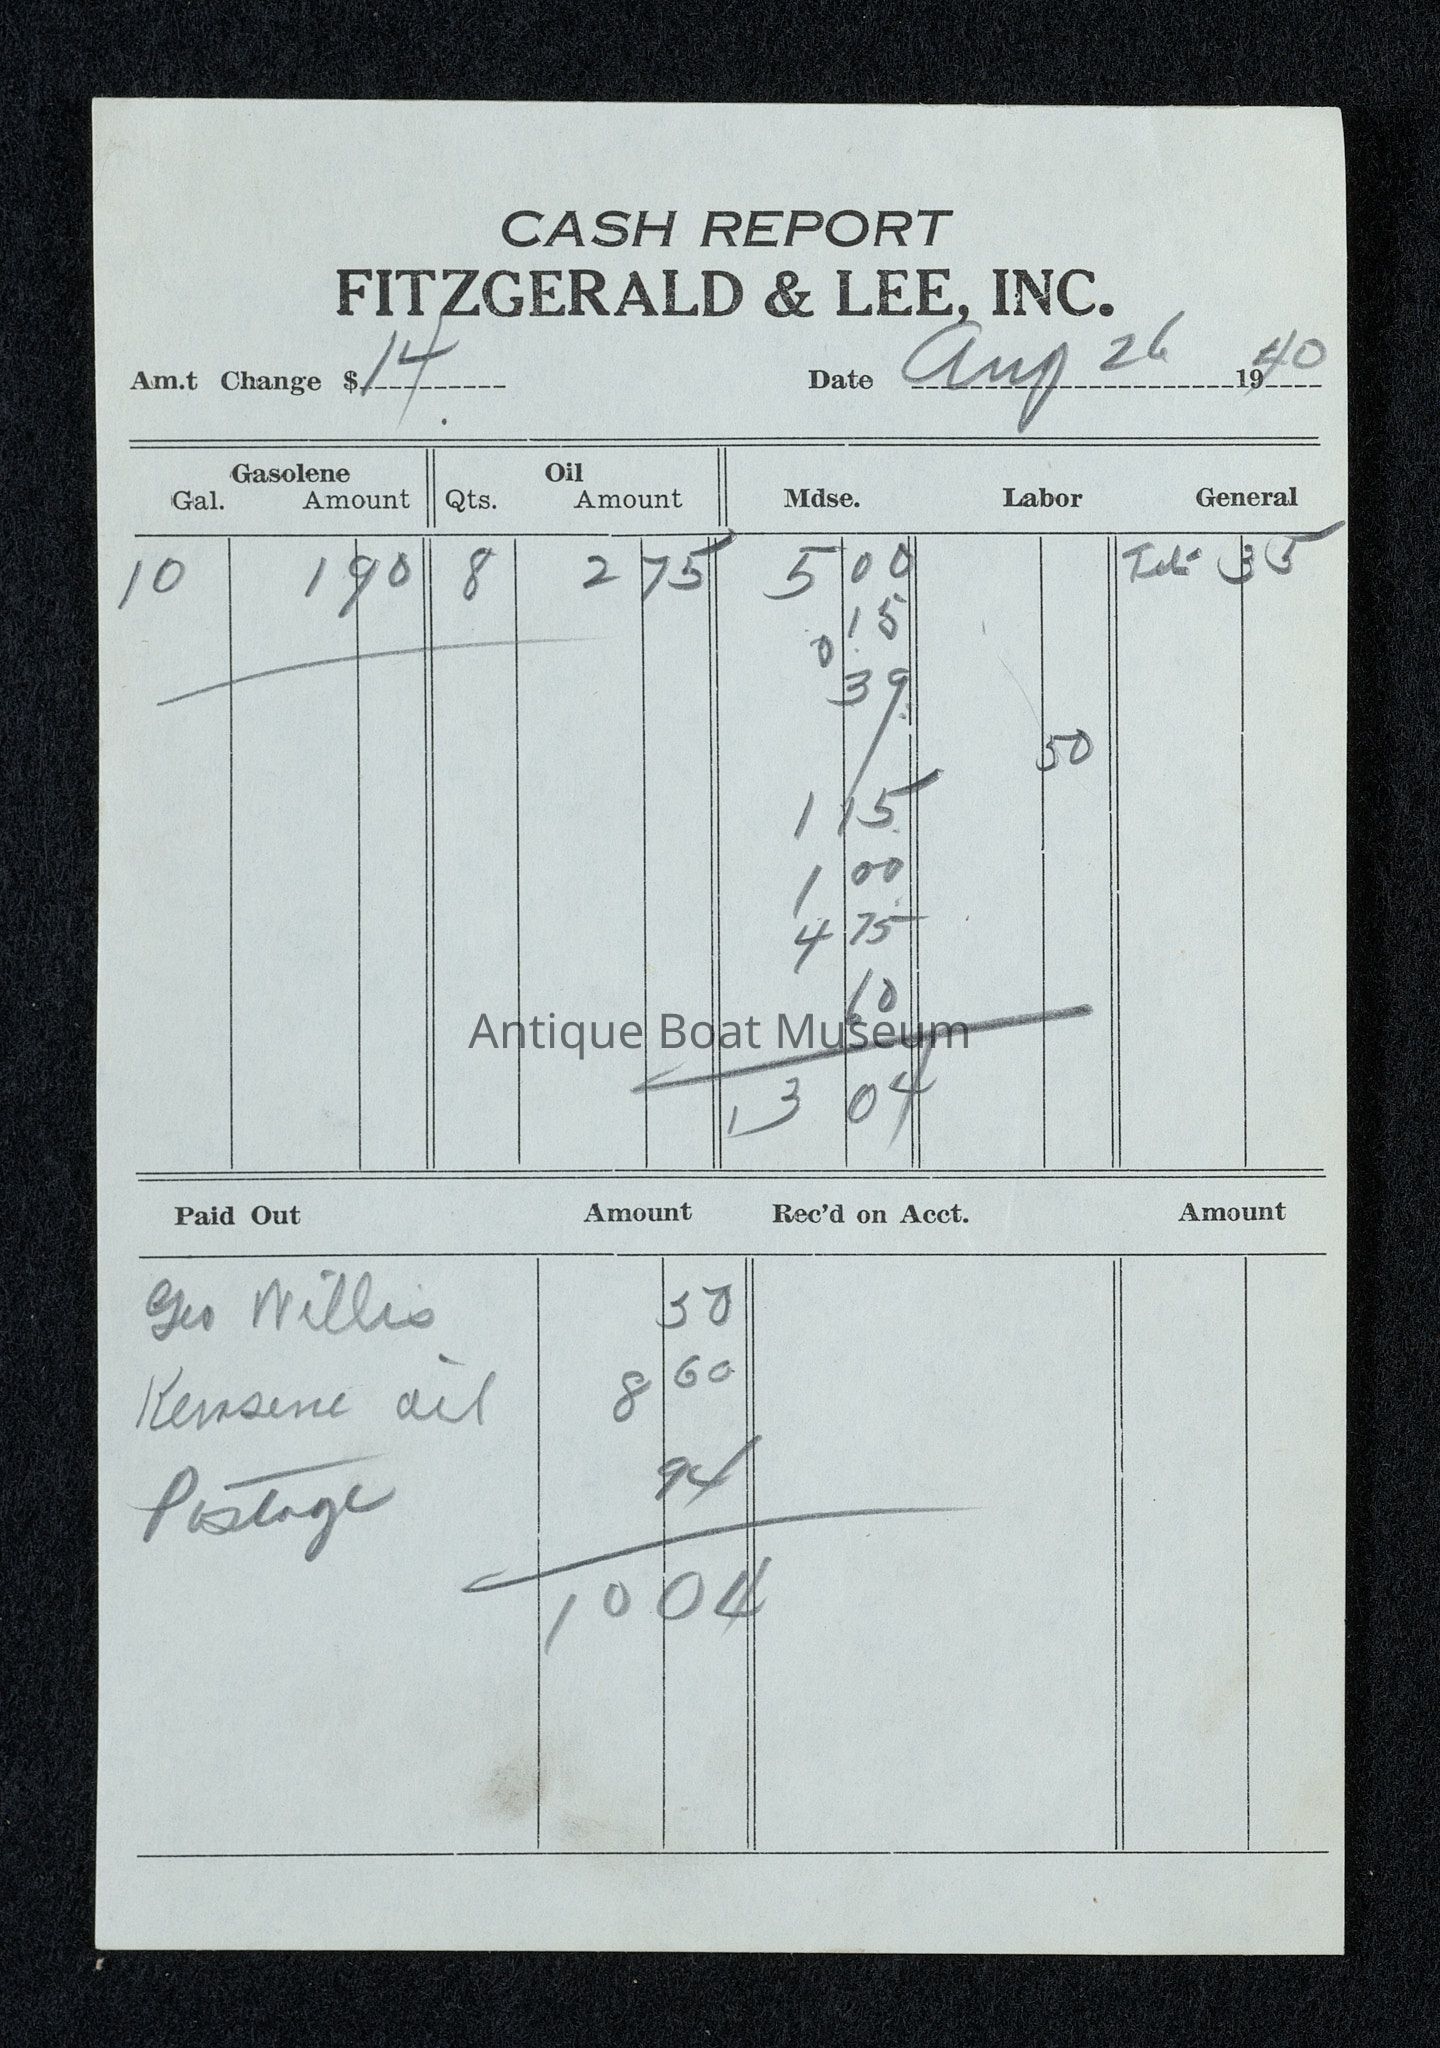 CASH REPORT
FITZGERALD & LEE, INC.
Am.t Change $ 14 Date Aug 26 1940
Gasolene Oil
Gal. Amount Qts. Amount Mdse. Labor General
10 1 90 8 2 75 5 00 Tel. 35
15
0
39
50
1 15
1 00
4 75
60
Antique Boat Museum
13 04
Paid Out Amount Rec'd on Acct. Amount
Geo Willis 50
Kerosene oil 8 60
Postage 94
10 04